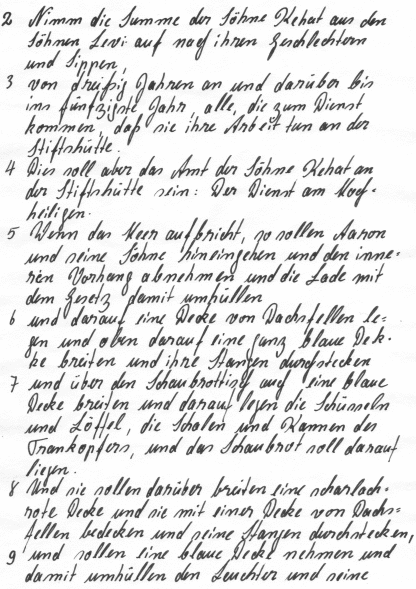 2 Nimm die Summe der Söhne Kehat aus den
Söhnen Levi auf nach ihren Geschlechtern
und Sippen,
3 von dreißig Jahren an und darüber bis
ins fünfzigste Jahr, alle, die zum Dienst
kommen, daß sie ihre Arbeit tun an der
Stiftshütte.
4 Dies soll aber das Amt der Söhne Kehat an
der Stiftshütte sein: Der Dienst am Hoch-
heiligen.
5 Wenn das Heer aufbricht, so sollen Aaron
und seine Söhne hineingehen und den inne-
ren Vorhang abnehmen und die Lade mit
dem Gesetz damit umhüllen
6 und darauf eine Decke von Dachsfellen le-
gen und oben darauf eine ganz blaue Dek-
ke breiten und ihre Stangen durchstecken
7 und über den Schaubrottisch auch eine blaue
Decke breiten und darauf legen die Schüsseln
und Löffel, die Schalen und Kannen des
Trankopfers, und das Schaubrot soll darauf
liegen.
8 Und sie sollen darüber breiten eine scharlach-
rote Decke und sie mit einer Decke von Dachs-
fellen bedecken und seine Stangen durchstecken,
9 und sollen eine blaue Decke nehmen und
damit umhüllen den Leuchter und seine